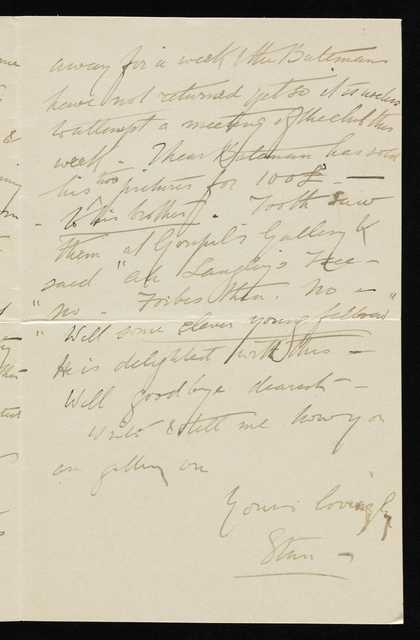 away for a week & the Batemans
have not returned yet so it is useless
to attempt a meeting of the club this
week - I hear has sold
his two pictures for 100£ -
to his brother. Tooth saw
them at Goupil's Gallery &
said "ah Langley's Free -
"no - Forbes then. No -"
"Well some clever young fellow"
He is delighted with this -
Well goodbye dearest -
Write & tell me how you
are getting on
Yours lovingly
Stan -